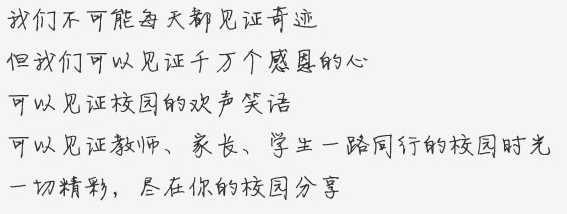 我们不可能每天都见证奇迹
但我们可以见证千万个感恩的心
可以见证校园的欢声笑语
可以见证教师、家长、学生一路同行的校园时光
一切精彩，尽在你的校园分享